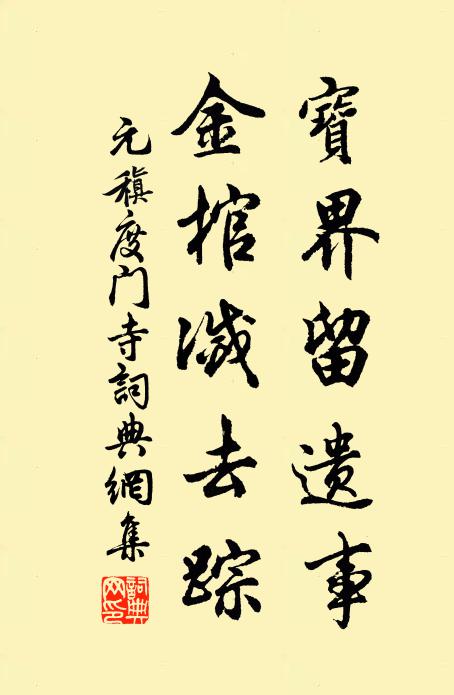 寶界留遺事
金棺滅去踪
元稹度门寺詞典網集
詞典网印